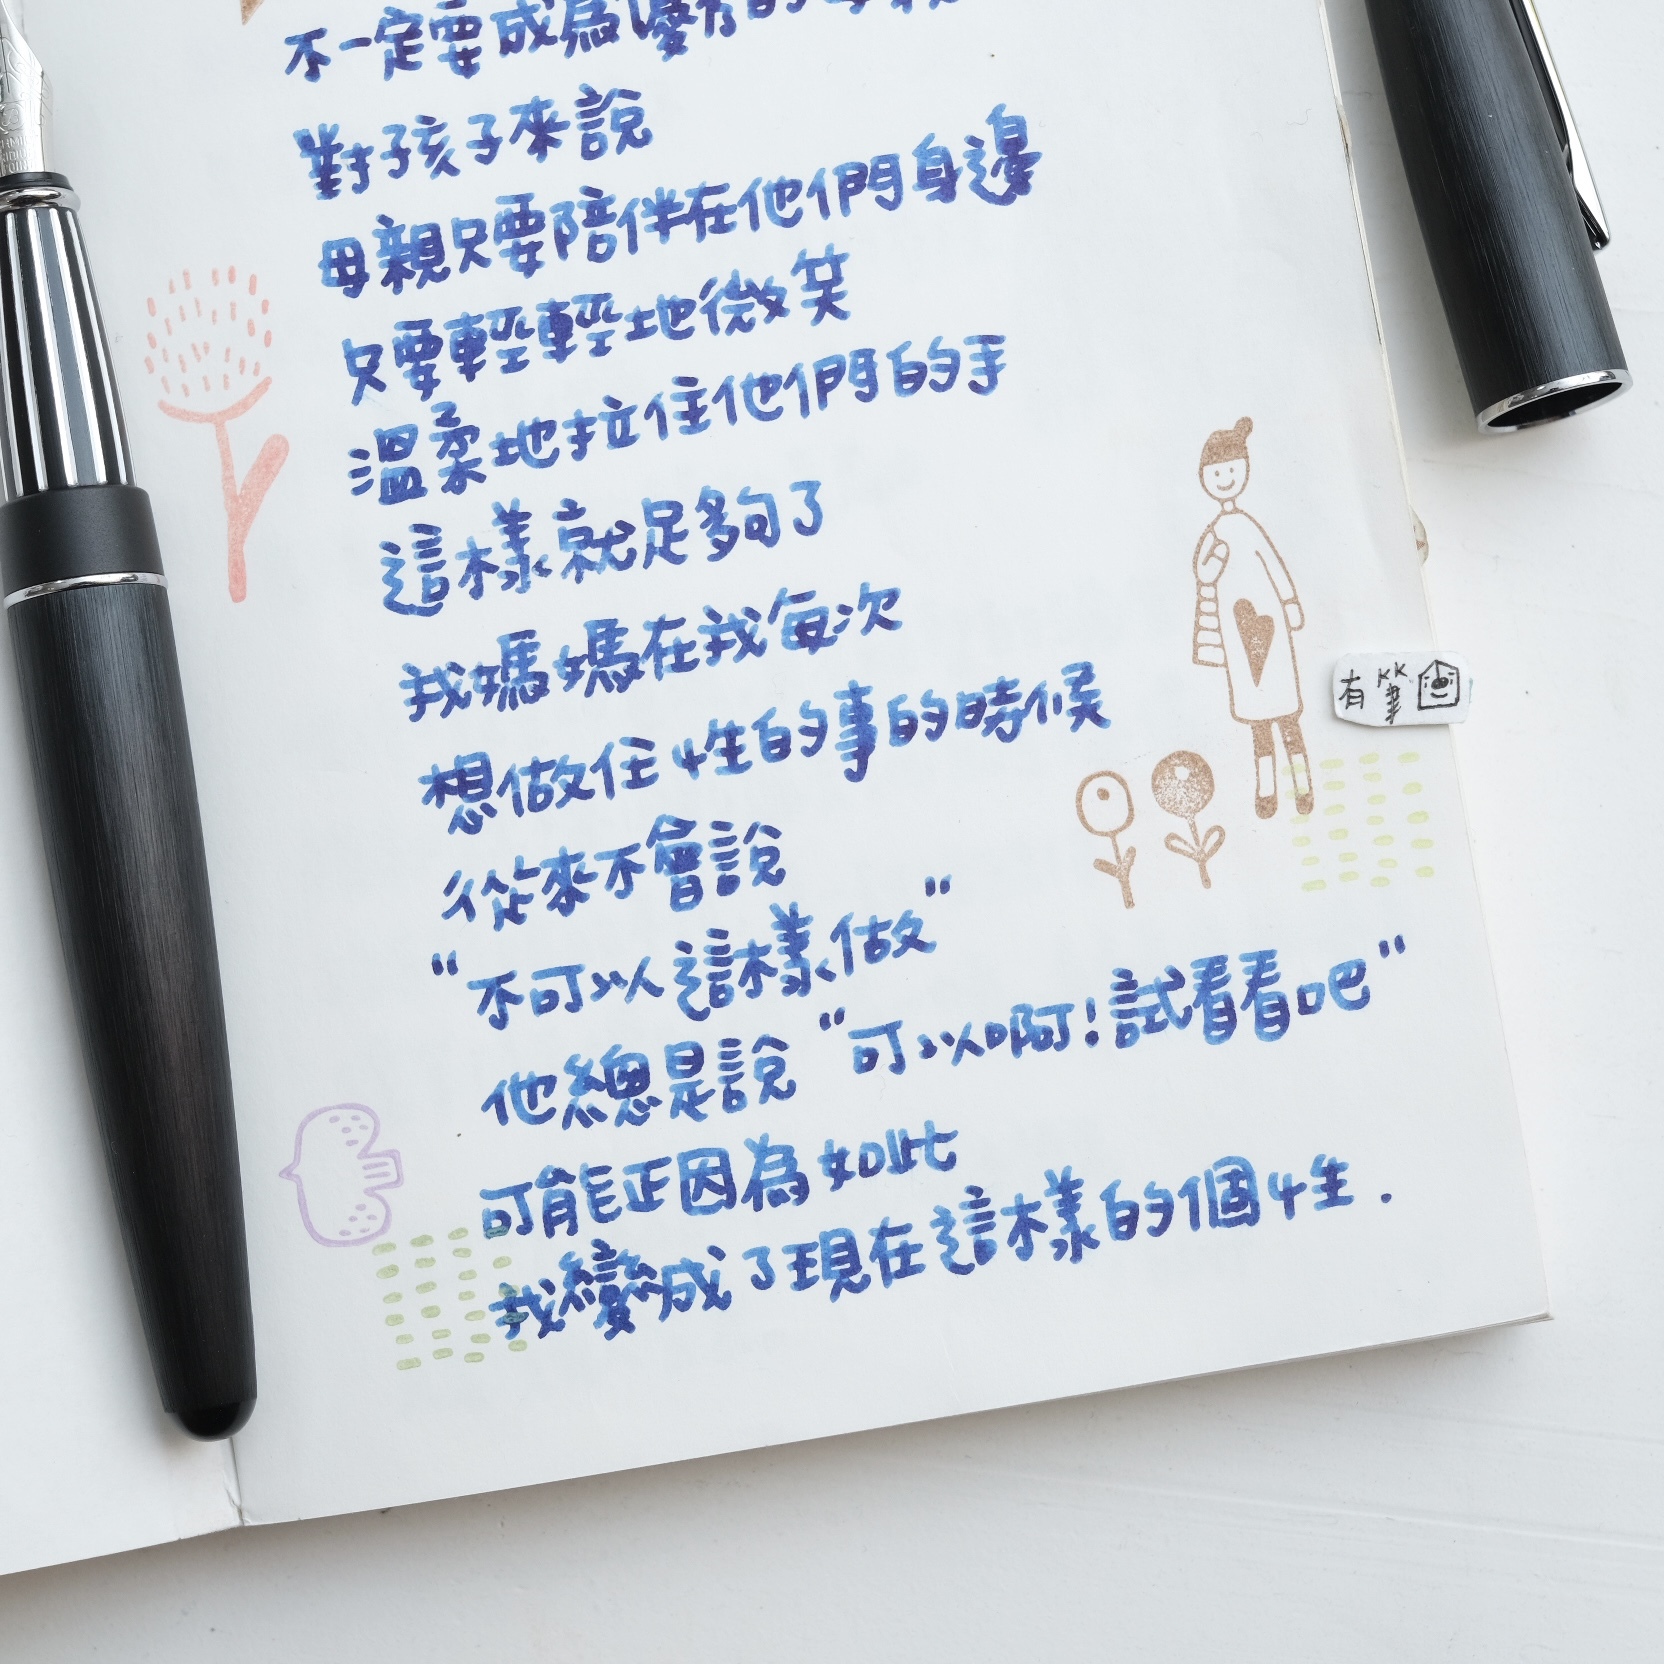 不一定要成為優秀的母親
對孩子來說
母親只要陪伴在他們身邊
只要輕輕地微笑
溫柔地拉住他們的手
這樣就足夠了
我媽媽在我每次
想做任性的事的時候
從來不會說
“不可以這樣做”
他總是說“可以啊!試看看吧”
可能正因為如此
我變成了現在這樣的個性.
有筆